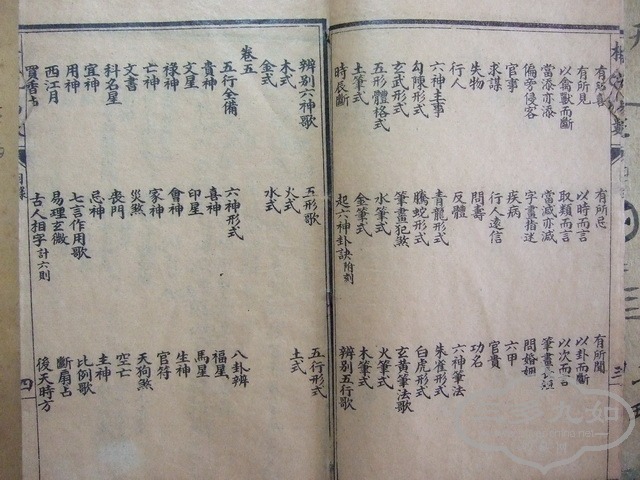 有所喜 有所忌 有所聞
有所見 以時而言 以卦而斷
以禽獸而斷 取類而言 以次而言
當添亦添 當減亦減 筆畫
偏旁侵客 字畫指迷 問婚姻
官事 疾病 六甲
求謀 行人遠信 官貴
失物 問壽 功名
行人 反體 六神筆法
六神主事 青龍形式 朱雀形式
勾陳形式 騰蛇形式 白虎形式
玄武形式 筆畫犯煞 玄黃筆法歌
五形體格式 水筆式 火筆式
土筆式 金筆式 木筆式
時辰斷 起六神卦訣附刻 辨別五行歌
辨別六神歌 五形歌 五行形式
木式 火式 土式
金式 水式
卷五
五行全備 六神形式 八卦辨
貴神 喜神 福星
文星 印星 馬星
祿神 會神 生神
亡神 家神 官符
文書 災煞 天狗煞
科名星 喪門 空亡
宜神 忌神 主神
用神 七言作用歌 比例歌
西江月 易理玄微 斷扇占
買香占 古人相字計六則 後天時方
目錄 四
三